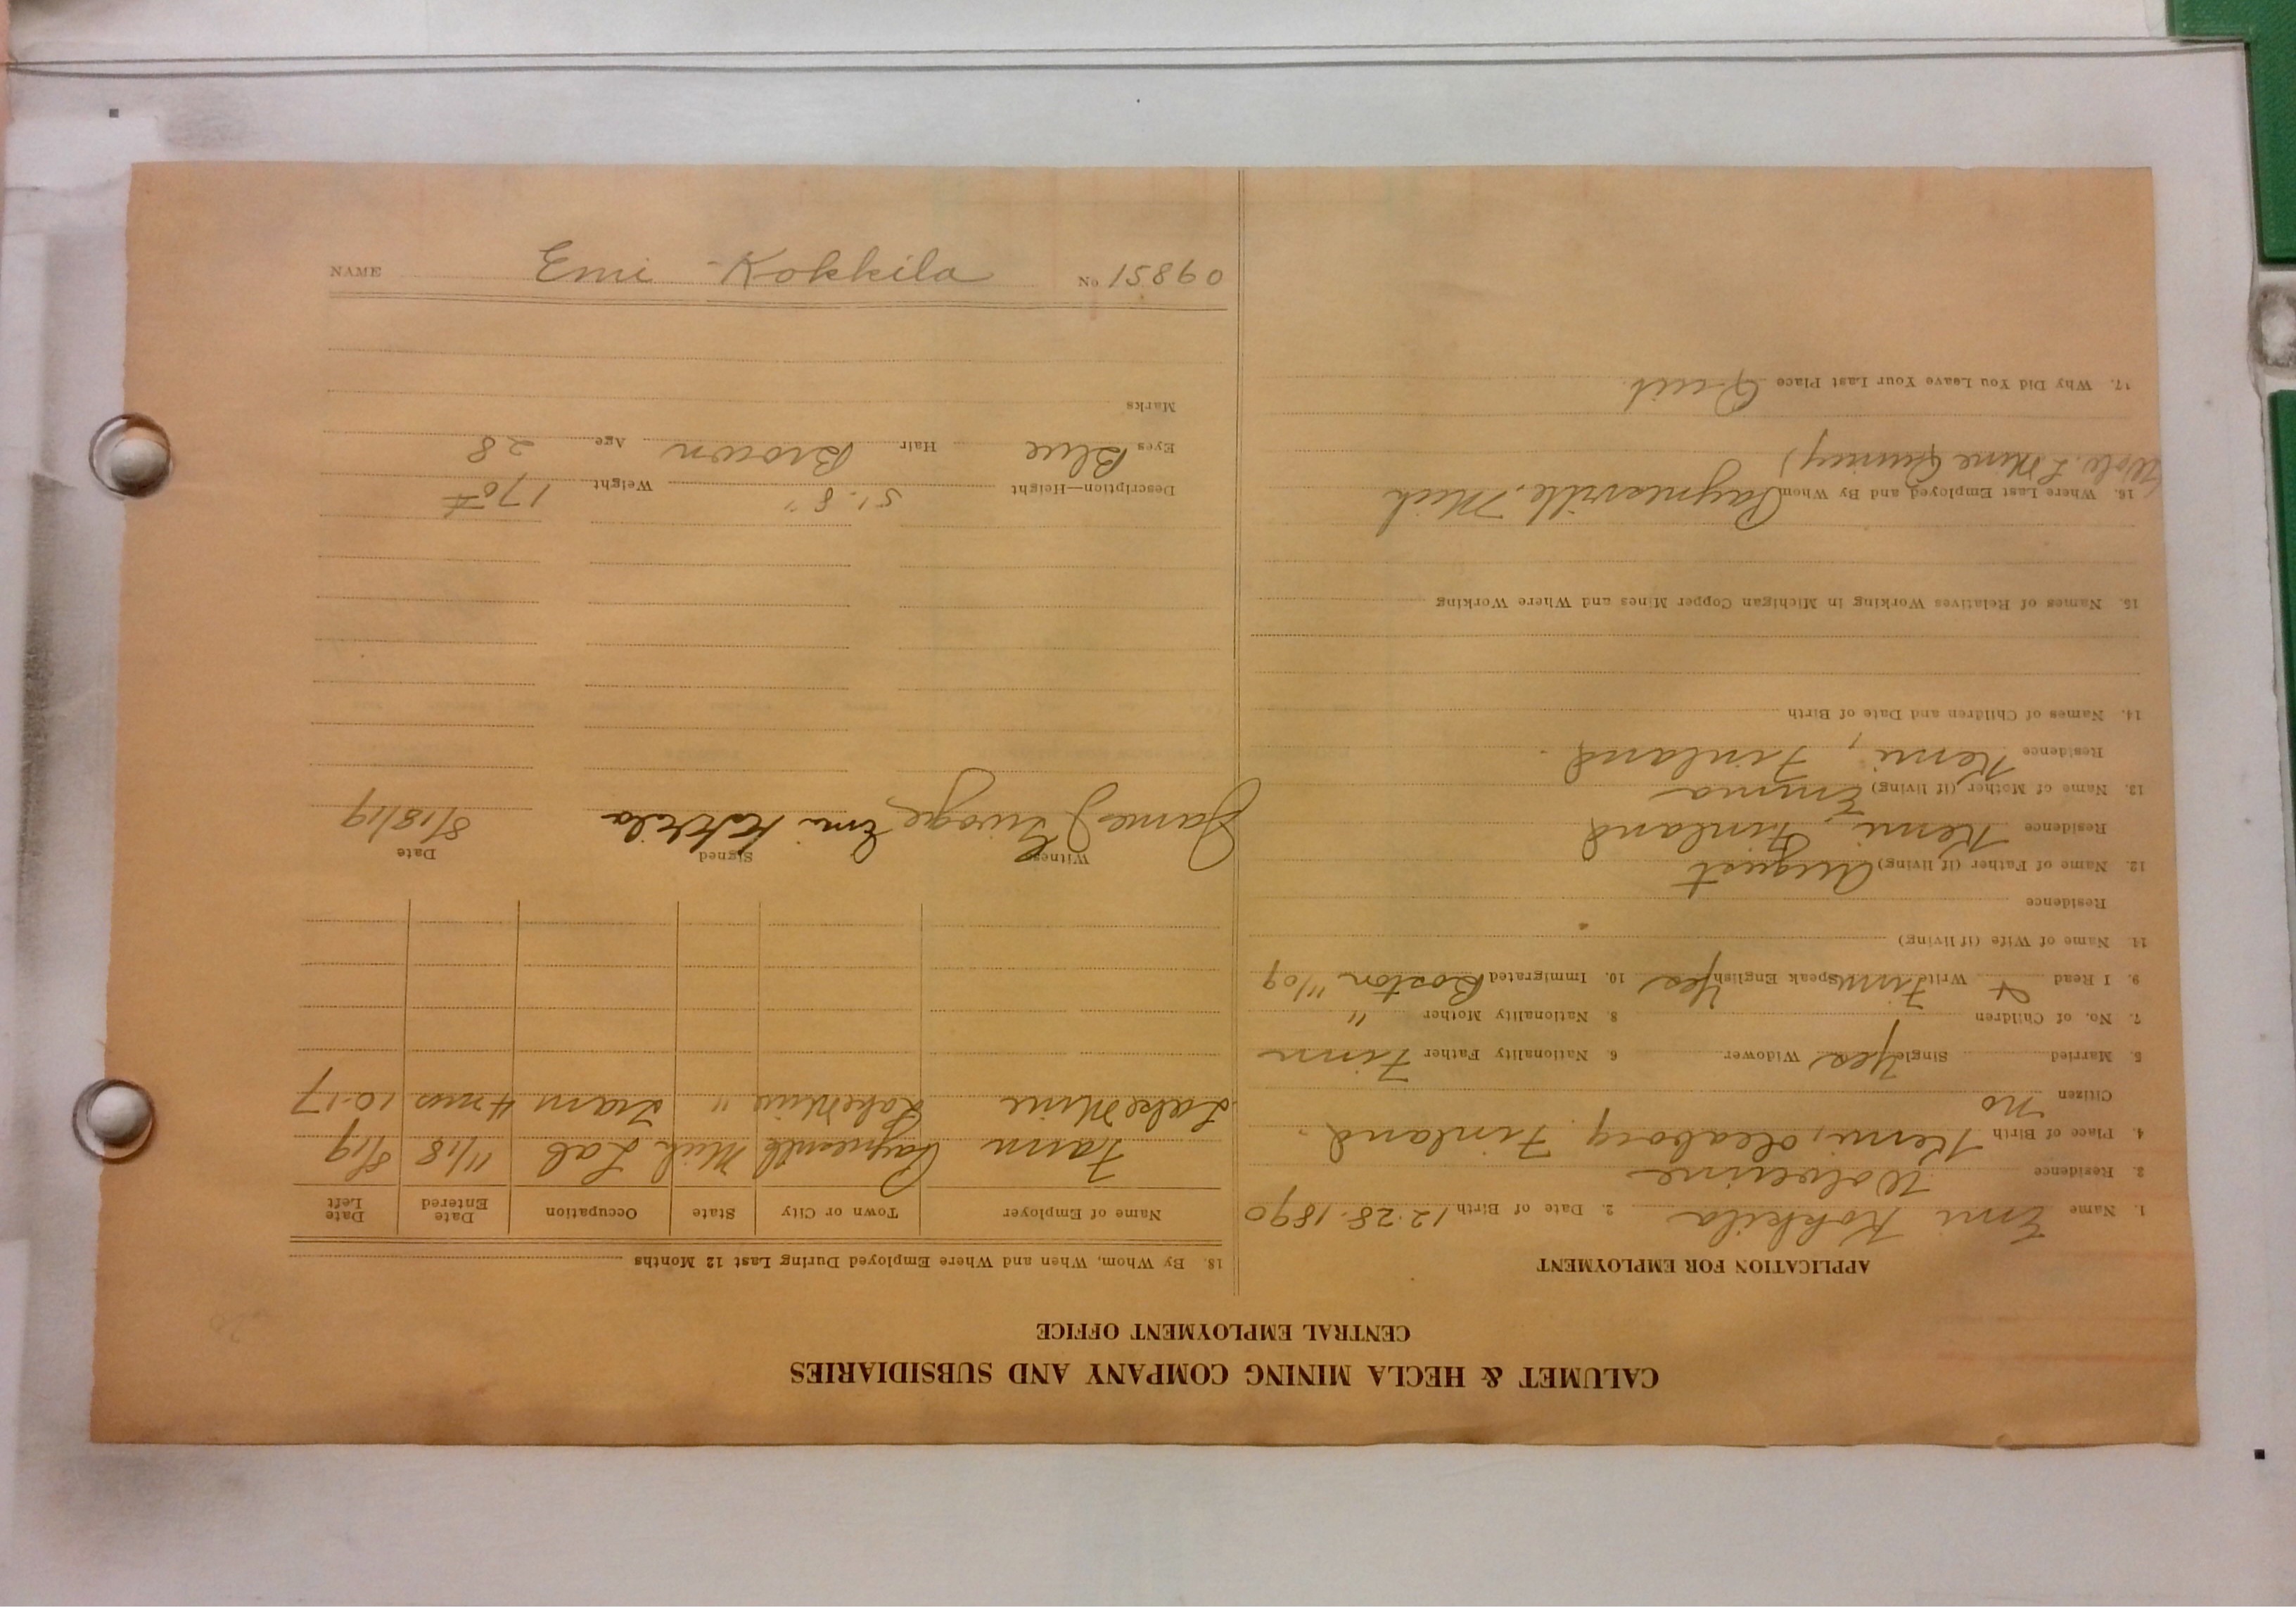 CALUMET & HECLA MINING COMPANY AND SUBSIDIARIES
CENTRAL EMPLOYMENT OFFICE
APPLICATION FOR EMPLOYMENT
1. Name Emi Kokkila 2. Date of Birth 12.28.1890
3. Residence Wolverine
4. Place of Birth Kemi, Oleaborg. Finland.
Citizen no
5. Married Single Yes Widower 6. Nationality Father Finn
7. No. of Children 8. Nationality Mother "
9. I Read & Write Finn Speak English Yes 10. Immigrated Boston 11/09
11. Name of Wife (if living)
Residence
12. Name of Father (if living) August
Residence Kemi, Finland
13. Name of Mother (if living) Emma
Residence Kemi, Finland.
14. Names of Children and Date of Birth
15. Names of Relatives Working in Michigan Copper Mines and Where Working
16. Where Last Employed and By Whom Paynesville, Mich
17. Why Did You Leave Your Last Place Quit
18. By Whom, When and Where Employed During Last 12 Months
Name of Employer Town or City State Occupation Date Entered Date Left
Farm Paynesville Mich Lab 11/18 8/19
Lake Mine Lake Mine " Tram 4 mos 10-17
Witness Signed Date
James Emi Kokkila 8/18/19
Description—Height 5'.8" Weight 170#
Eyes Blue Hair Brown Age 28
Marks
NAME Emi Kokkila No 15860